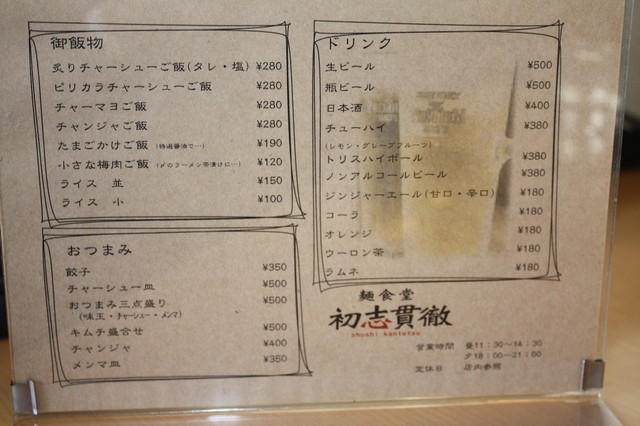 御飯物
炙りチャーシューご飯(タレ・塩) ¥280
ピリカラチャーシューご飯 ¥280
チャーマヨご飯 ¥280
チャンジャご飯 ¥280
たまごかけご飯 (特選醤油で…) ¥190
小さな梅肉ご飯 (〆のラーメン茶漬けに…) ¥120
ライス 並 ¥150
ライス 小 ¥100
おつまみ
餃子 ¥350
チャーシュー皿 ¥500
おつまみ三点盛り ¥500
(味玉・チャーシュー・メンマ)
キムチ盛合せ ¥500
チャンジャ ¥400
メンマ皿 ¥350
ドリンク
生ビール ¥500
瓶ビール ¥500
日本酒 ¥400
チューハイ ¥380
(レモン・グレープフルーツ)
トリスハイボール ¥380
ノンアルコールビール ¥380
ジンジャーエール(甘口・辛口) ¥180
コーラ ¥180
オレンジ ¥180
ウーロン茶 ¥180
ラムネ ¥180
麺食堂
初志貫徹
shoshi kantetsu
営業時間 昼11:30〜14:30
夕18:00〜21:00
定休日 店内参照